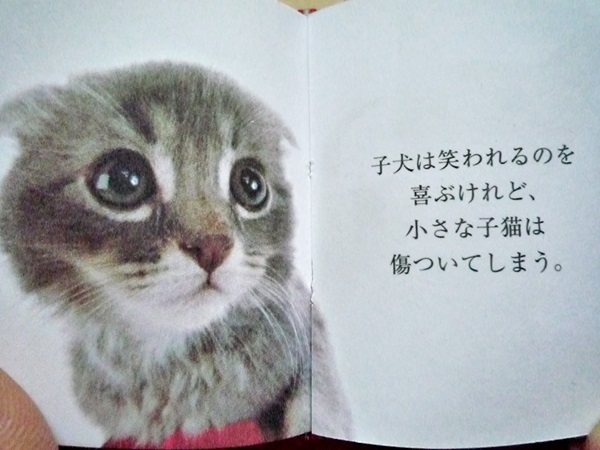 子犬は笑われるのを
喜ぶけれど、
小さな子猫は
傷ついてしまう。